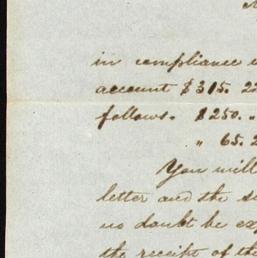 in compliance
account $315. 22
follows. $250. "
" 65. 2
You will
letter and the
no doubt be
the receipt of the